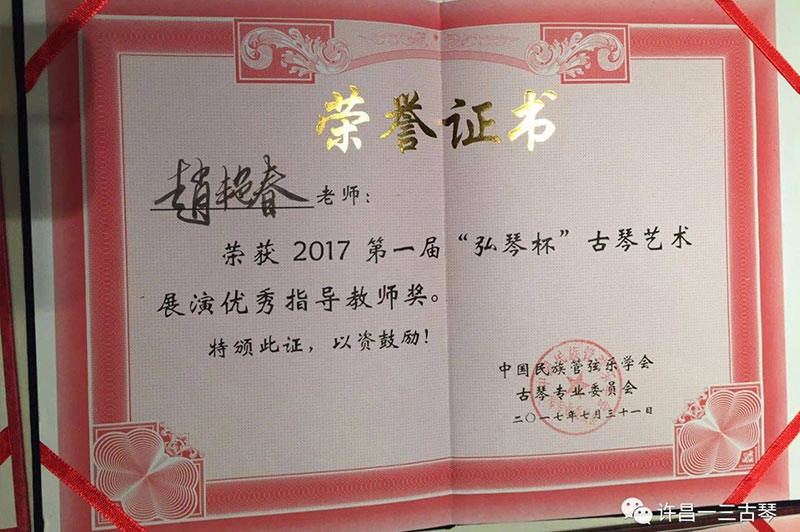 荣誉证书
趙艳春老师：
荣获 2017 第一届“弘琴杯”古琴艺术
展演优秀指导教师奖。
特颁此证，以资鼓励！
中国民族管弦乐学会
古琴专业委员会
二〇一七年七月三十一日
许昌一三古琴